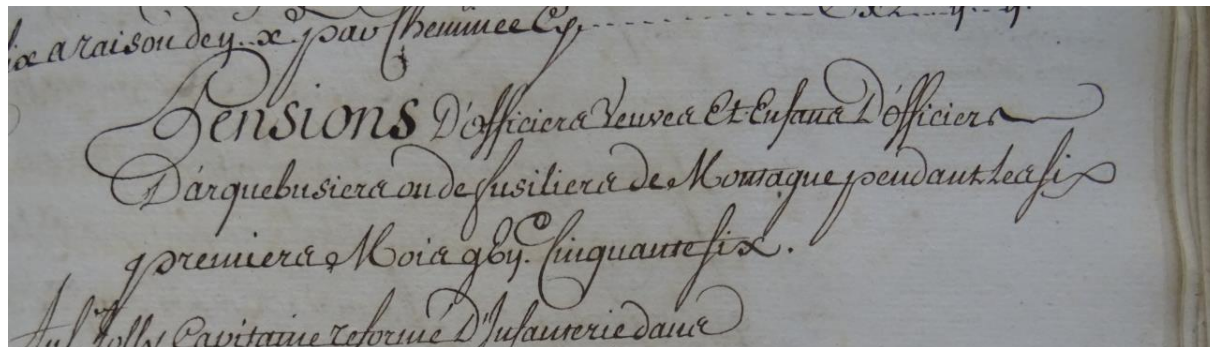 six a raison de y. x. par Cheminée Cy,
Pensions D'officiers Veuves Et Enfans D'officiers
D'arquebusiers ou de fusiliers de Montagne pendant les six
premiers Mois gby.c Cinquante six.
Au S.r Jolly Capitaine reformé D'Infanterie dans